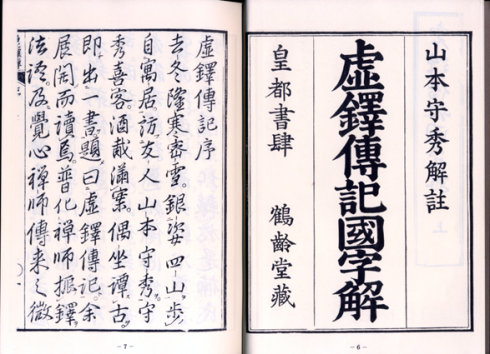 山本守秀解註
虛鐸傳記國字解
皇都書肆 鶴齡堂藏
– 6 –
虛鐸傳記序
去冬隆寒密雪。銀姿四山。歩
自寓居。訪友人山本守秀。守
秀喜客。酒滿案。偶坐譚古。
即出一書。題曰虛鐸傳記。余
展開而讀焉。普化禪師振鐸
法語。及覺心禪師傳来之微
– 7 –